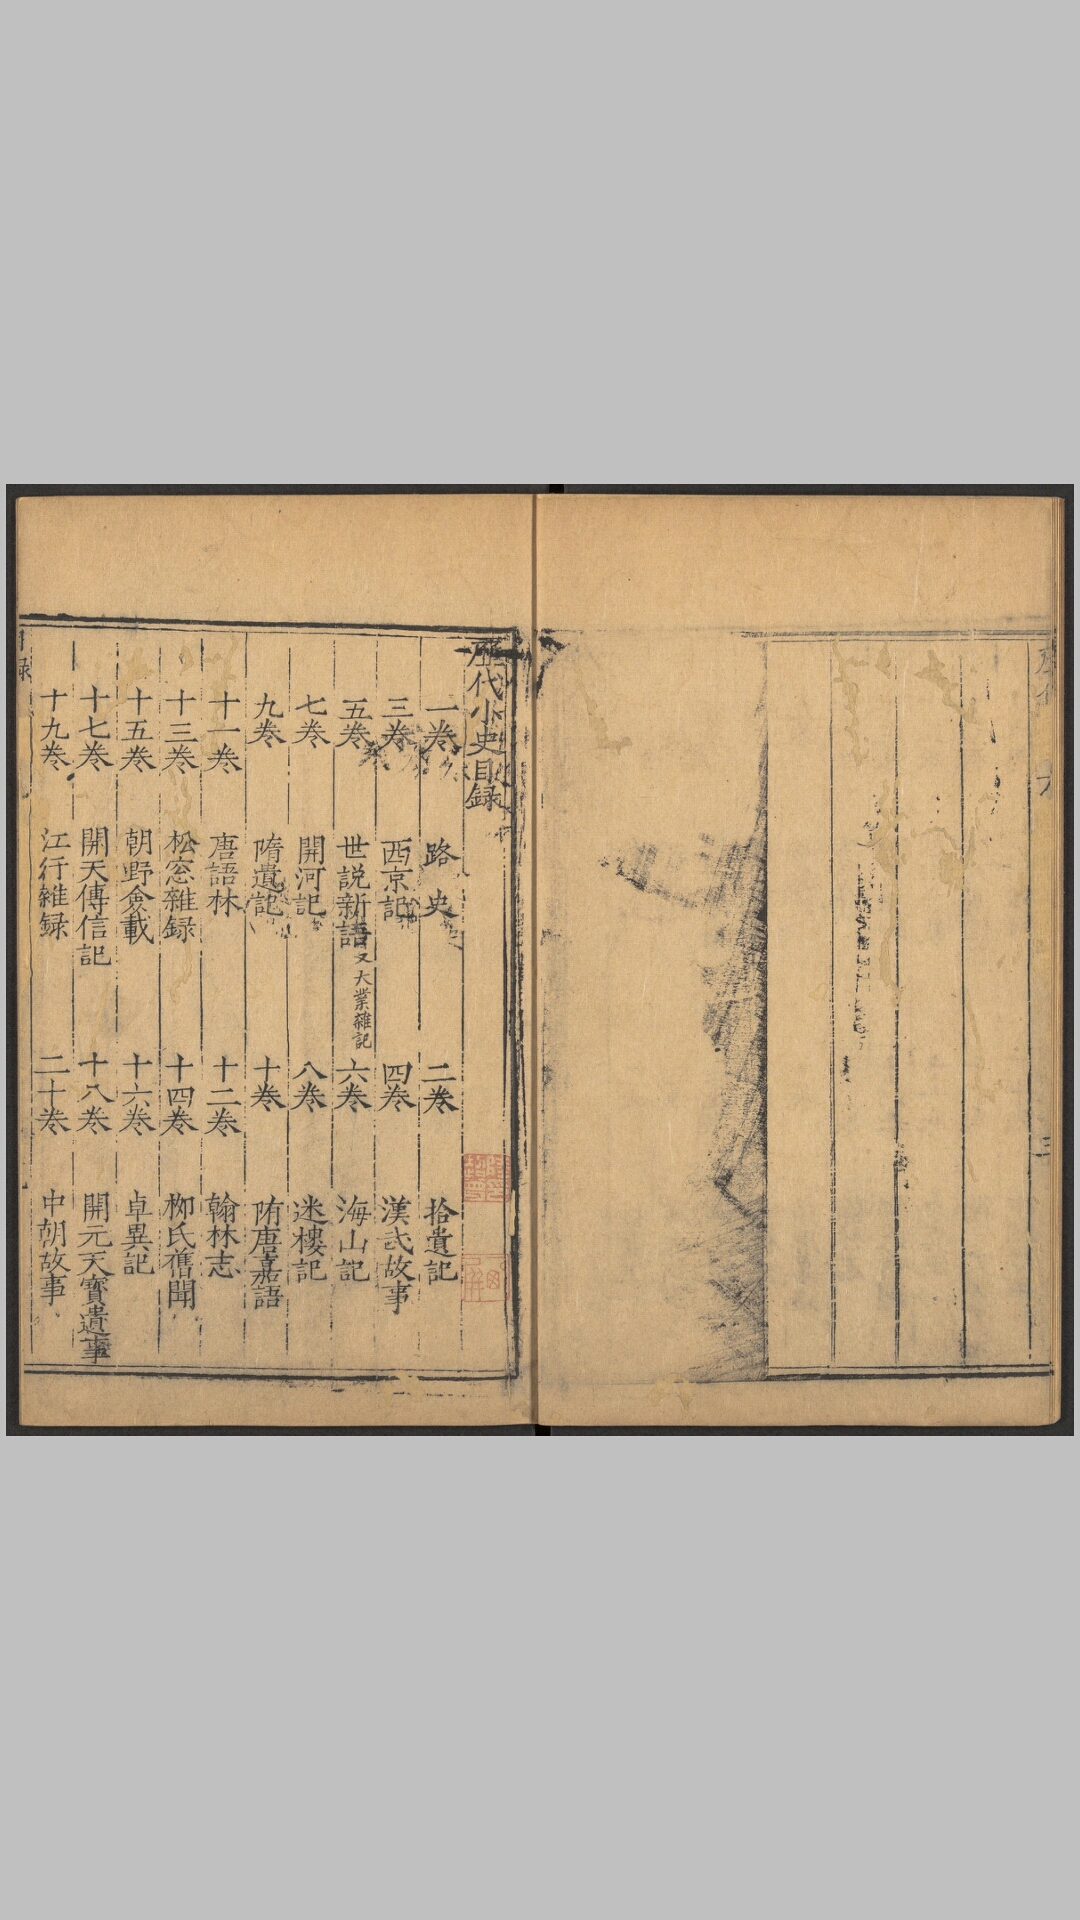 歷代小史目録
一卷 路史 二卷 拾遺記
三卷 西京記 四卷 漢武故事
五卷 世說新語又大業雜記 六卷 海山記
七卷 開河記 八卷 迷樓記
九卷 隋遺記 十卷 隋唐嘉語
十一卷 唐語林 十二卷 翰林志
十三卷 松窓雜録 十四卷 栁氏舊聞
十五卷 朝野僉載 十六卷 卓異記
十七卷 開天傳信記 十八卷 開元天寶遺事
十九卷 江行雜録 二十卷 中朝故事